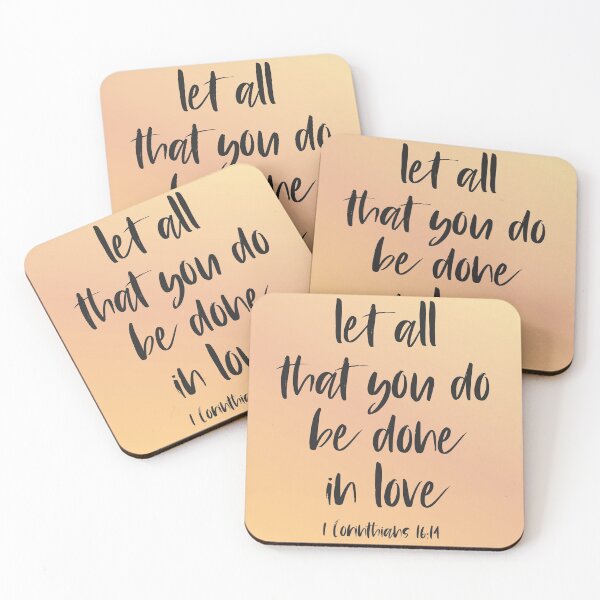 let all
that you do
be done
let all
that you do
be done
let all
that you do
be done
in love
1 Corinthians
let all
that you do
be done
in love
1 Corinthians 16:14